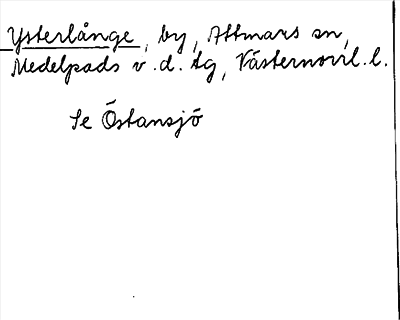 Ysterlånge, by, Attmars sn,
Medelpads v.d. tg, Västernorrl. l.
Se Östansjö